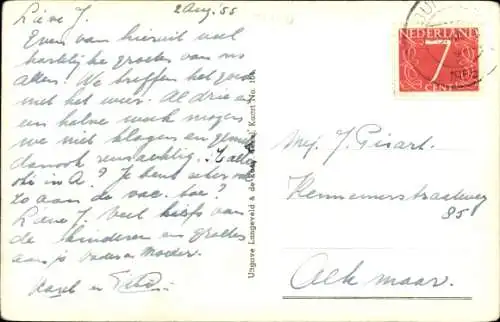 2 Aug. '55
Lieve J.
Even van hieruit veel
hartelijke groeten van ons
allen! We treffen het goed
met het weer. Al drie en
een halve week mogen
we niet klagen en
dan ook reuzachtig. Is alles
oké in A.? Je bent zeker
zo aan de vac. toe?
Lieve J. Veel liefs van
de kinderen en groetjes
aan je vader en moeder.
Karel en
Uitgave Langeveld & de Kaart No.
NEDERLAND
7
CENT
Mej. J. Gisart.
Kennemerstraatweg
85
Alkmaar.